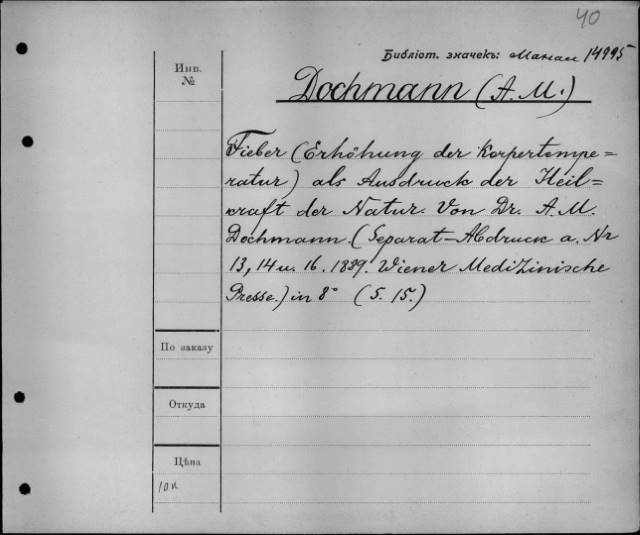 40
Библіот. значекъ: 14995
Инв.
№
Dochmann (A. M.)
Fieber (Erhöhung der Korpertempe=
ratur) als Ausdruck der Heil=
kraft der Natur. Von Dr. A. M.
Dochmann. (Separat-Abdruck a. Nr
13, 14 u. 16. 1889. Wiener Medizinische
Presse.) in 8° (S. 15.)
По заказу
Откуда
Цѣна
10 к